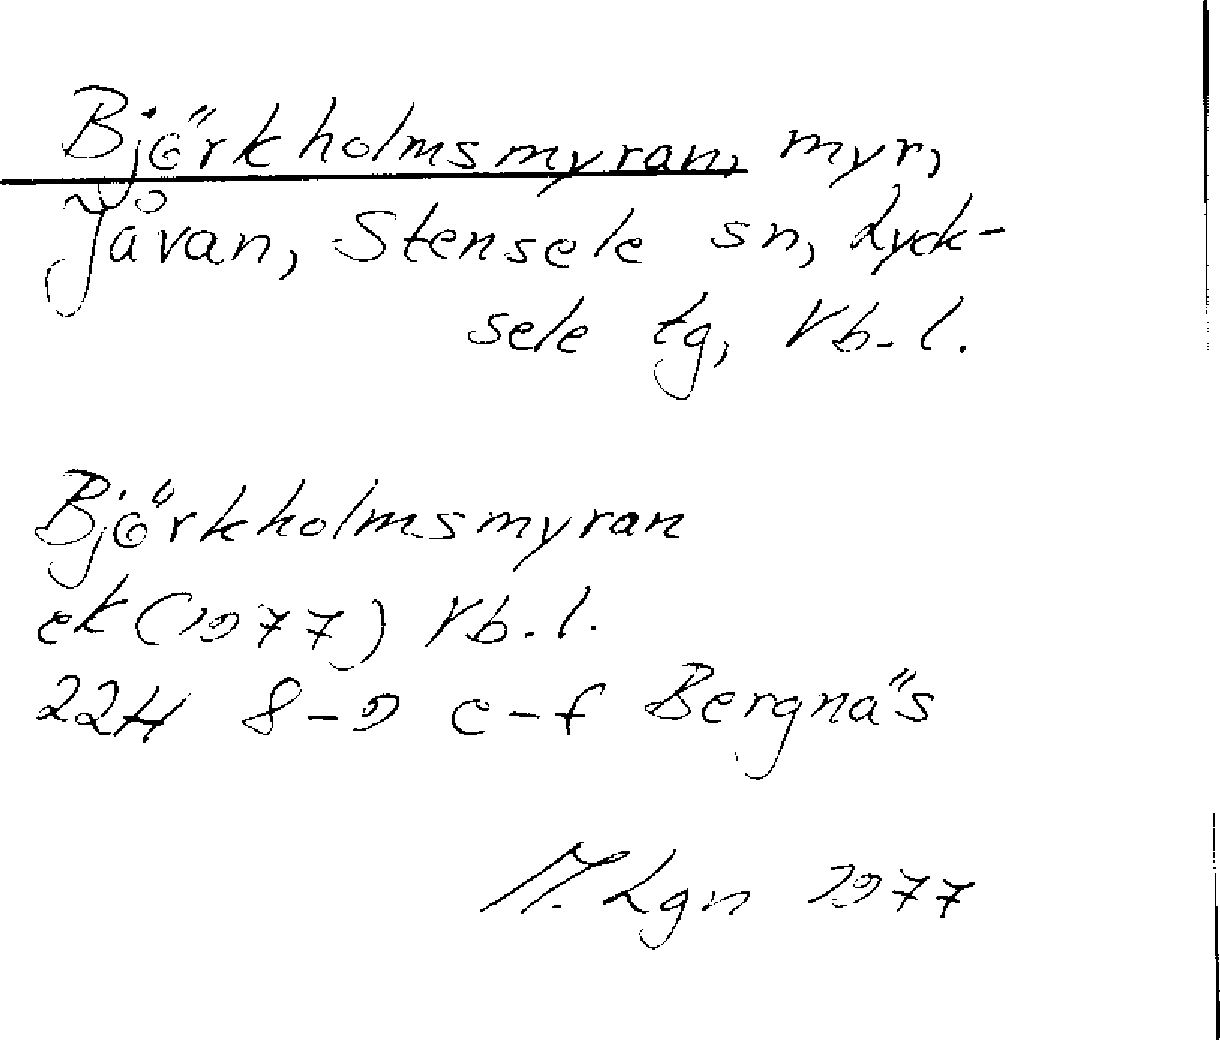 Björkholmsmyran, myr,
Jåvan, Stensele sn, Lyck-
sele tg, Vb. l.
Björkholmsmyran
ek (1977) Vb. l.
22H 8-9 e-f Bergnäs
Lgn 1977